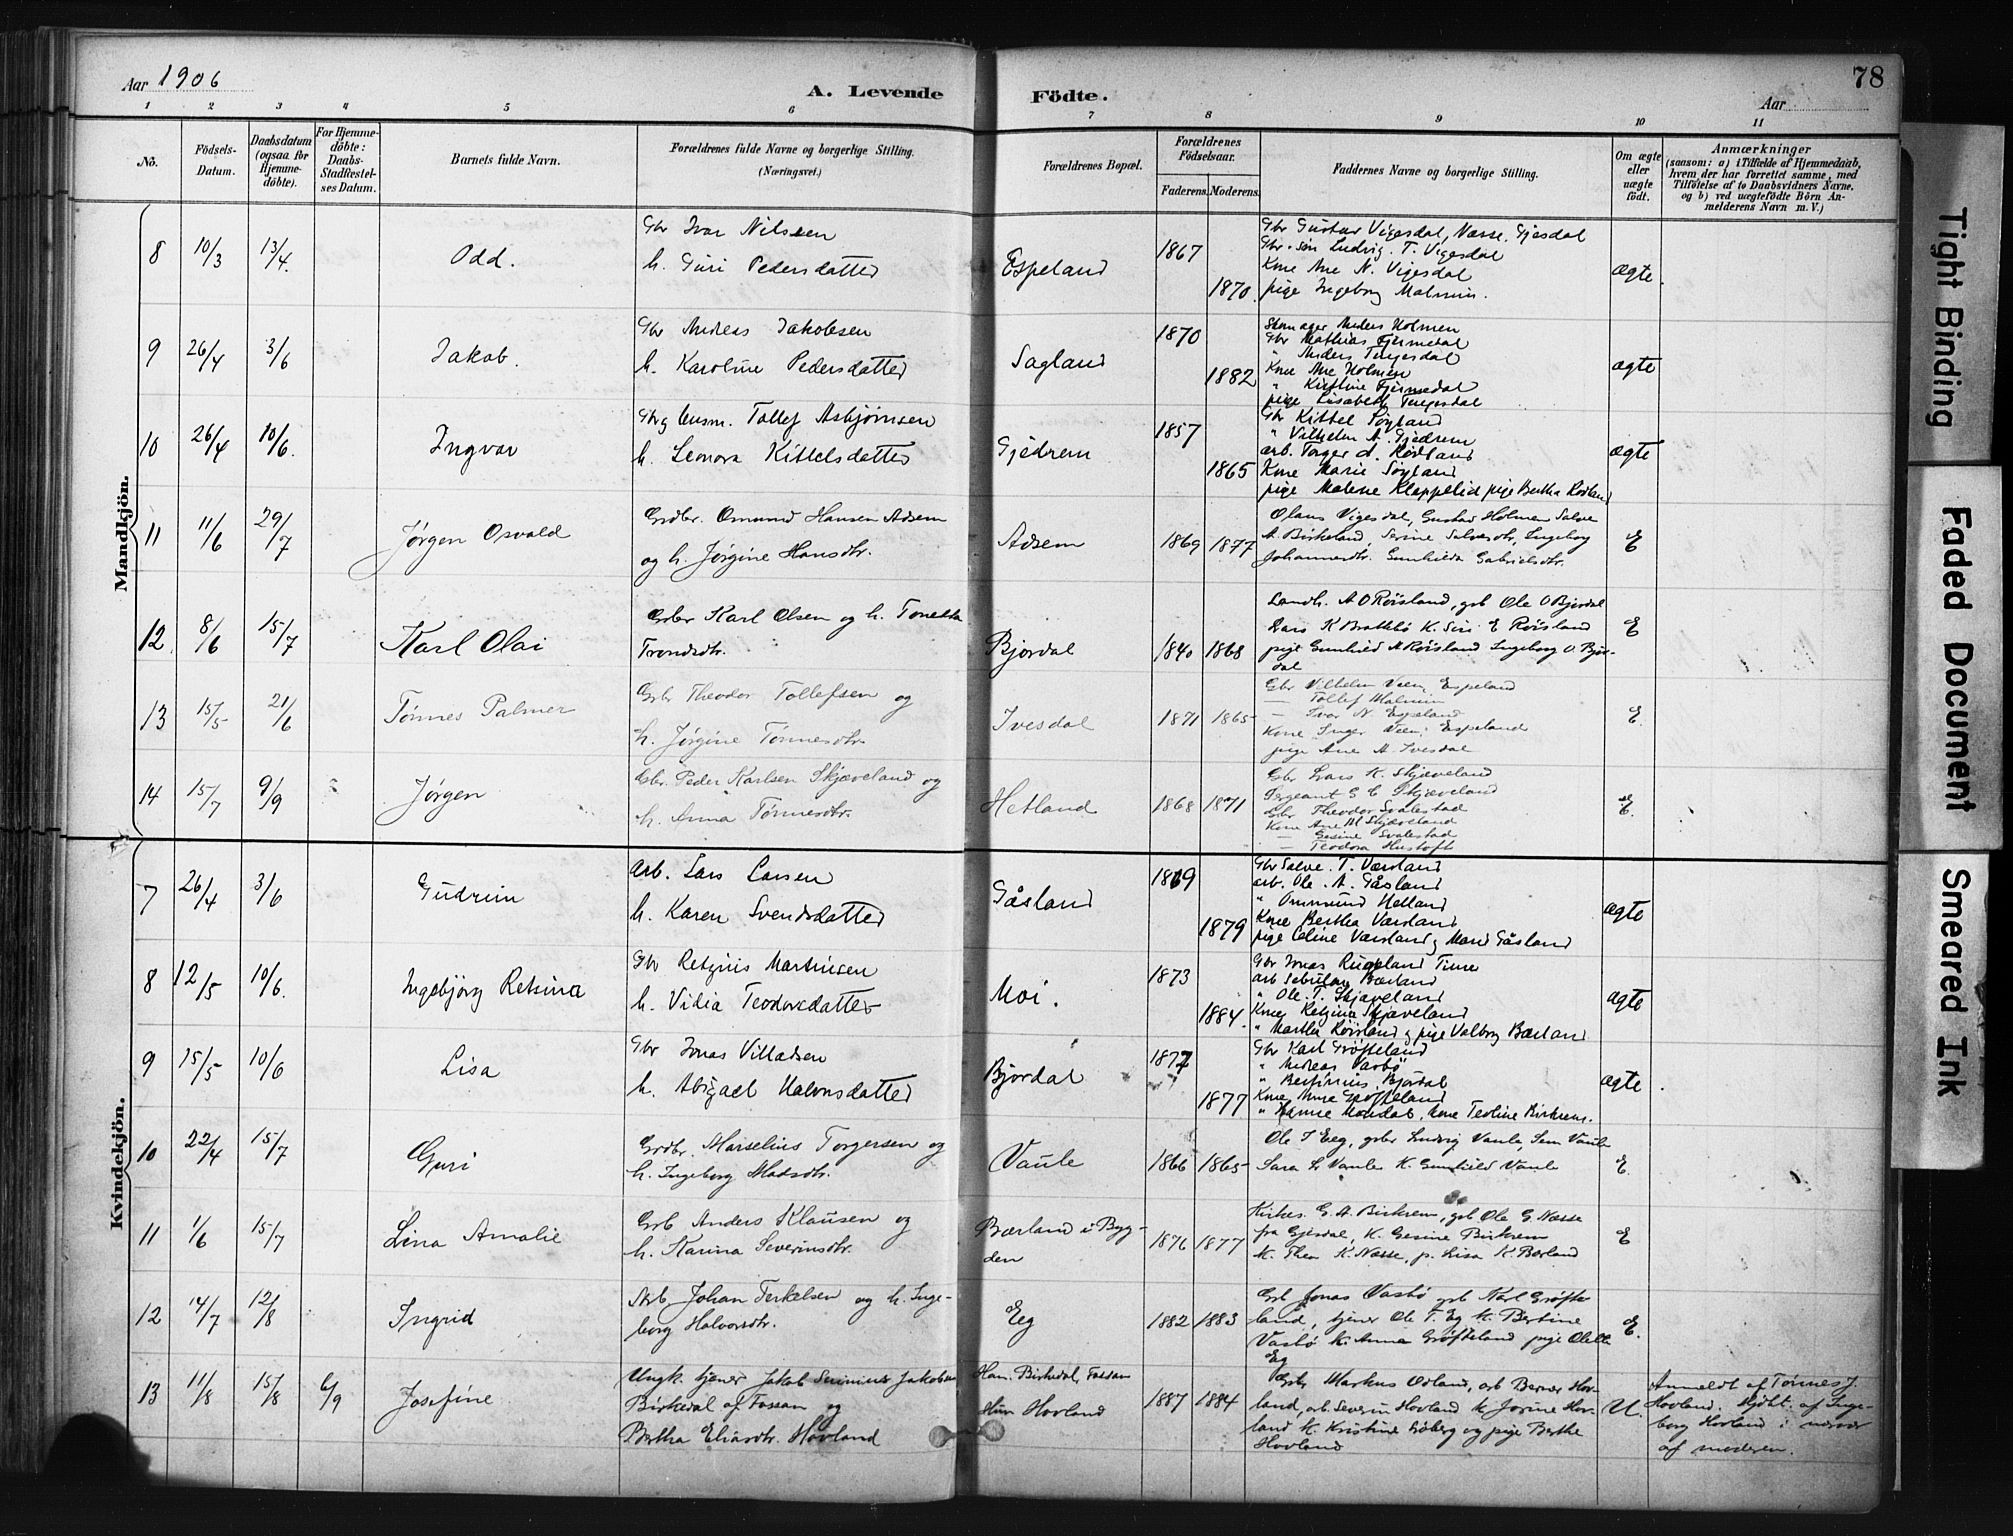 Aar 1906
A. Levende Födte.
78
Aar
1 2 3 4 5 6 7 8 9 10 11
No.
Födsels-Datum.
Daabsdatum (ogsaa for Hjemme-döbte).
For Hjemme-döbte: Daabs-Stadfæstel-ses Datum.
Barnets fulde Navn.
Forældrenes fulde Navne og borgerlige Stilling. (Næringsvei.)
Forældrenes Bopæl.
Forældrenes Födselsaar.
Faderens. Moderens.
Faddernes Navne og borgerlige Stilling.
Om ægte eller uægte födt.
Anmærkninger
(saasom: a) i Tilfælde af Hjemmedaab, hvem der har forrettet samme, med Tilföielse af to Daabsvidners Navne, og b) ved uægtefödte Börn An-melderens Navn m. V.)
Mandkjön.
8 10/3 13/4. Odd.
Gbr Ivar Nilssen
h. Guri Pedersdatter
Espeland 1867 1870.
Gbr Gustav Vigesdal, Næsse, Gjesdal
Gbr. søn Ludvig. T. Vigesdal
Kone Ane N. Vigesdal
pige Ingeborg Malmin.
ægte.
9 26/4 3/6 Jakob.
Gbr Andreas Jakobsen
h. Karoline Pedersdatter
Sagland 1870 1882
Anders Holmen
Gbr Mathias Fjermedal
" Anders Tengesdal
Kone Ane Holmen
" Kristine Fjermedal
pige Lisabeth Tengesdal
ægte
10 26/4 10/6. Ingvar
Gbr g husm. Tollef Asbjørnsen
h. Leonora Kittelsdatter
Gjedrem 1857 1865
Gbr Kittel Søyland
" Vilhelm A. Gjedrem
arb. Torger d. Rødland
Kone Marie Søyland
pige Malene Kleppelid pige Bertha Rødland
ægte
11 11/6 29/7 Jørgen Osvald
Grdbr. Omund Hansen Adsem
og h. Jørgine Hansdtr.
Adsem 1869 1877
Olaus Vigesdal, Gustav Holmen Salve
A. Birkeland, Serine Salvesdtr, Ingeborg
Johannesdtr. Gunhilda Gabrielsdtr.
E
12. 8/6 15/7 Karl Olai
Grbr Karl Olsen og h. Tonetta
Trondsdtr.
Bjordal 1840 1868
Landh. A O Røisland, grb Ole O Bjordal
Lars K Brattebø K. Siri E Røisland
pige Gunhild A Røisland Ingeborg O. Bjor-
dal
E
13 15/5 21/6 Tønnes Palmer
Grbr Theodor Tollefsen og
h. Jørgine Tønnesdtr.
Ivesdal 1871 1865
Gbr Vilhelm Veen, Espeland
— Tollef Malmin
— Ivar N. Espeland
Kone Inger Veen, Espeland
pige Ane A. Ivesdal
E.
14 15/7 9/9 Jørgen
Gbr. Peder Karlsen Skjæveland og
h. Anna Tønnesdtr.
Hetland 1868 1871
Gbr Lars K. Skjæveland
Sergeant G C Skjæveland
Gbr Theodor Svalestad
Kone Ane M Skjæveland
— Gesine Svalestad
— Teodora Hustoft
E.
Kvindekjön.
7 26/4 3/6 Gudrun
Arb. Lars Larsen
h. Karen Svendsdatter
Gåsland 1869 1879
Gbr Salve. T. Værland
arb. Ole. A. Gåsland
" Ommund Helland
Kone Bertha Værland
pige Celine Værland g Mari Gåsland
ægte
8 12/5 10/6. Ingebjørg Retsina
Gbr Retzius Martinsen
h. Vidia Teodorsdatter
Moi. 1873 1884.
Gbr Jonas Rugland Time
arb Bærland
" Ole. T. Skjæveland
Kone Retzina Skjæveland
" Martha Røisland g pige Valborg Bærland
ægte
9 15/5 10/6 Lisa
Gbr Jonas Villadsen
h. Abigael Halvorsdatter
Bjordal 1877 1877
Gbr Karl Grøfteland
" Andreas Vasbø
" Bjordal
Kone Anne Grøfteland
" Mandal, Kone Teoline Birkrem.
ægte.
10 22/4 15/7 Guri
Grdbr. Marselius Torgersen og
h. Ingeborg Madsdtr.
Vaule 1866 1865
Ole T Eeg, grbr Ludvig Vaule, Sem Vaule
Sara S. Vaule K. Gunhild Vaule
E.
11 1/6 15/7 Lina Amalie
Grb Anders Klausen og
h. Karina Severinsdtr.
Bærland i Byg-
den 1876 1877
Kirkes. G. A. Birkrem, grb Ole G. Næsse
fra Gjesdal, K. Gesine Birkrem
K. Thea K. Næsse, p. Lisa K Bærland
E
12 14/7 12/8 Ingrid
Arb Johan Terkelsen og h. Inge-
borg Halvorsdtr.
Eeg 1882 1883
Grb Jonas Vasbø grb Karl Grøfte-
land, tjener Ole T. Eg K. Bertine
Vasbø K. Anna Grøfteland pige Olelle
Eg
E.
13 11/8 15/8 6/9 Josefine
Ungk. tjener Jakob Jakobsen
Birkedal af Fossan og
Bertha Eliasdtr. Hovland
Ham. Birkedal, Fossan
Hun Hovland 1887 1884
Grb. Markus Ødland, arb Berner Hov-
land, arb Severin Hovland K Josine Hov-
land K. Kristine Søberg og pige Berthe
Hovland
U.
Anmeldt af Tønnes J.
Hovland. Hjdbt. af Inge-
borg Hovland i nærvær
af moderen.
Tight Binding
Faded Document
Smeared Ink